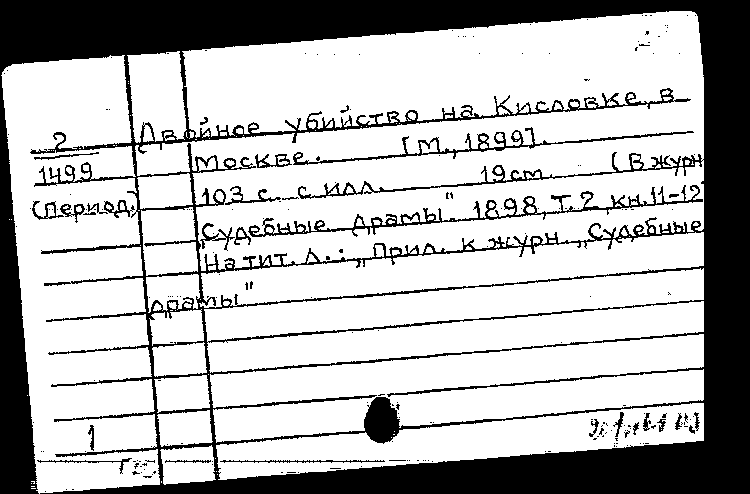 Двойное убийство на Кисловке, в
2
Москве. [М., 1899].
1499
103 с. с илл. 19 см. (В журн
(Период.)
"Судебные драмы". 1898, Т. 2, кн. 11-12
На тит. л.: "Прил. к журн. "Судебные
драмы"
1